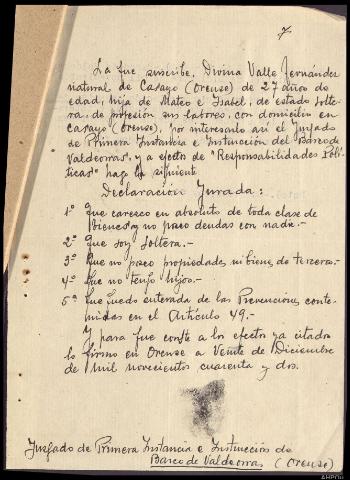 7
La que suscribe, Divina Valle Fernández
natural de Casayo (Orense) de 27 años de
edad, hija de Mateo e Isabel, de estado solte-
ra, de profesión sus labores, con domicilio en
Casayo (Orense), por interesarlo así el Juzgado
de Primera Instancia e Instrucción del Barco de
Valdeorras, y a efecto de "Responsabilidades Polí-
ticas" hago la siguiente
Declaración Jurada:
1º Que caresco en absoluto de toda clase de
bienes y no poseo deudas con nadie.-
2º Que soy Soltera.-
3º Que no poseo propiedades ni bienes de terceros.-
4º Que no tengo hijos.-
5º Que quedo enterada de las Prevenciones conte-
nidas en el Artículo 49.-
Y para que conste a los efectos ya citados
lo firmo en Orense a Veinte de Diciembre
de mil novecientos cuarenta y dos.
Juzgado de Primera Instancia e Instrucción de
Barco de Valdeorras (Orense)
AHPOU